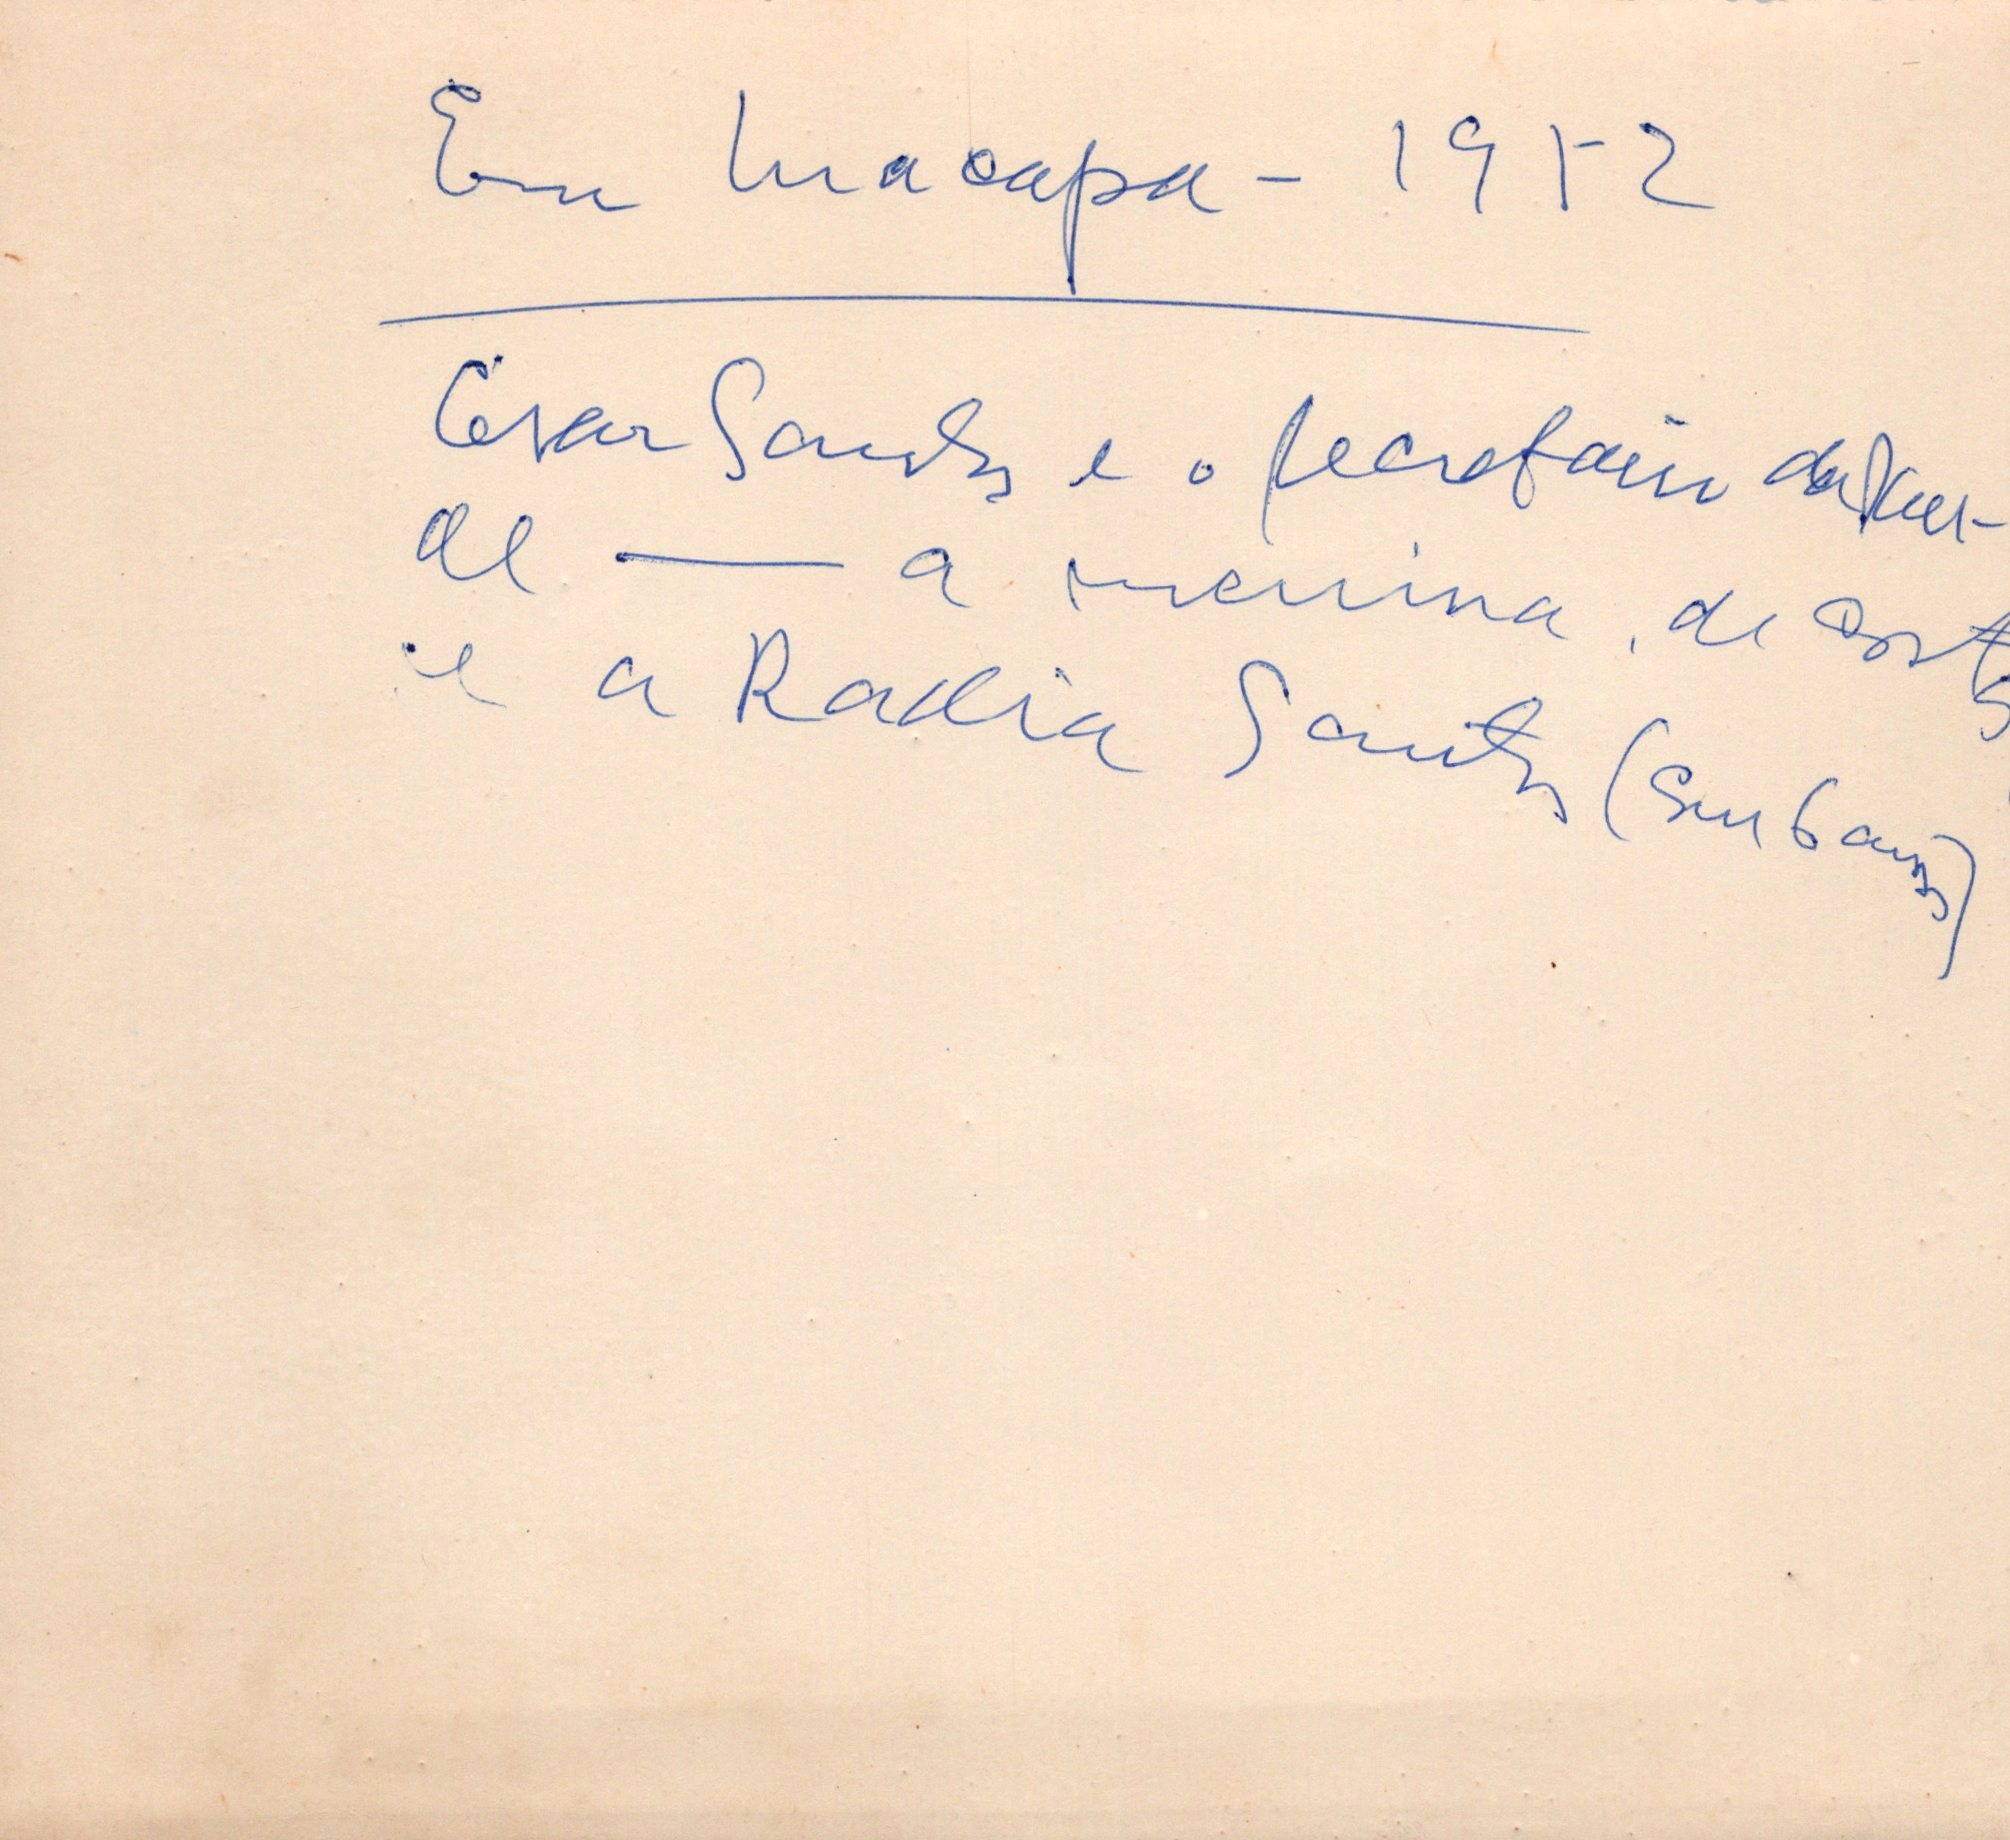 Em Macapa - 1952
Cesar Santos e o secretário da Saú-
de — a menina de costas
e a Radia Santos (seus 6 anos)